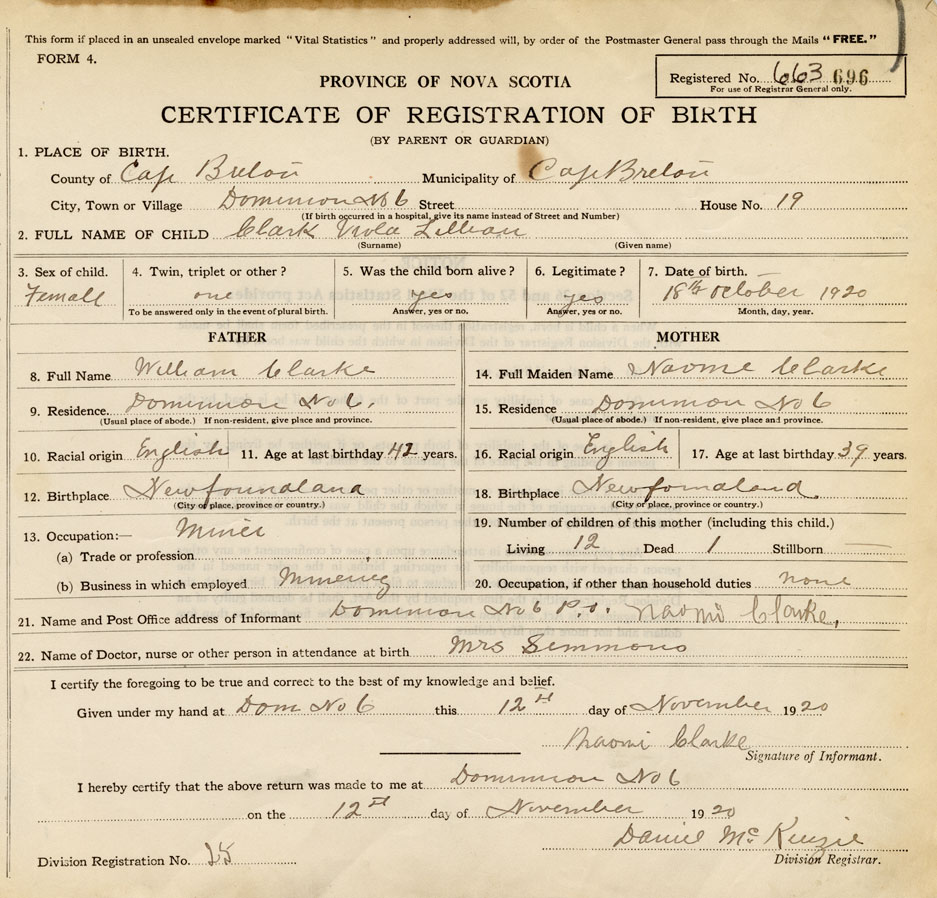 This form if placed in an unsealed envelope marked "Vital Statistics" and properly addressed will, by order of the Postmaster General pass through the Mails "FREE."
FORM 4.
Registered No. 663 696
For use of Registrar General only.
PROVINCE OF NOVA SCOTIA
CERTIFICATE OF REGISTRATION OF BIRTH
(BY PARENT OR GUARDIAN)
1. PLACE OF BIRTH.
County of Cape Breton Municipality of Cape Breton
City, Town or Village Dominion No 6 Street House No. 19
(If birth occurred in a hospital, give its name instead of Street and Number)
2. FULL NAME OF CHILD Clark Viola Lillian
(Surname) (Given name)
3. Sex of child. 4. Twin, triplet or other? 5. Was the child born alive? 6. Legitimate? 7. Date of birth.
Female one yes yes 18th October 1920
To be answered only in the event of plural birth. Answer, yes or no. Answer, yes or no. Month, day, year.
FATHER MOTHER
8. Full Name William Clarke 14. Full Maiden Name Naome Clarke
9. Residence. Dominion No 6. 15. Residence Dominion No 6
(Usual place of abode.) If non-resident, give place and province. (Usual place of abode.) If non-resident, give place and province.
10. Racial origin English 11. Age at last birthday 42 years. 16. Racial origin English 17. Age at last birthday 39 years.
12. Birthplace Newfoundland 18. Birthplace Newfomdland.
(City or place, province or country.) (City or place, province or country.)
13. Occupation:— Miner 19. Number of children of this mother (including this child.)
(a) Trade or profession Living 12 Dead 1 Stillborn —
(b) Business in which employed Mineing 20. Occupation, if other than household duties none
21. Name and Post Office address of Informant Dominion No 6 P.O. Naomi Clarke,
22. Name of Doctor, nurse or other person in attendance at birth Mrs Semmons
I certify the foregoing to be true and correct to the best of my knowledge and belief.
Given under my hand at Dom No 6 this 12th day of November 1920
Naomi Clarke
Signature of Informant.
I hereby certify that the above return was made to me at Dominion No 6
on the 12th day of November 1920
Daniel McKenzie
Division Registrar.
Division Registration No. 25